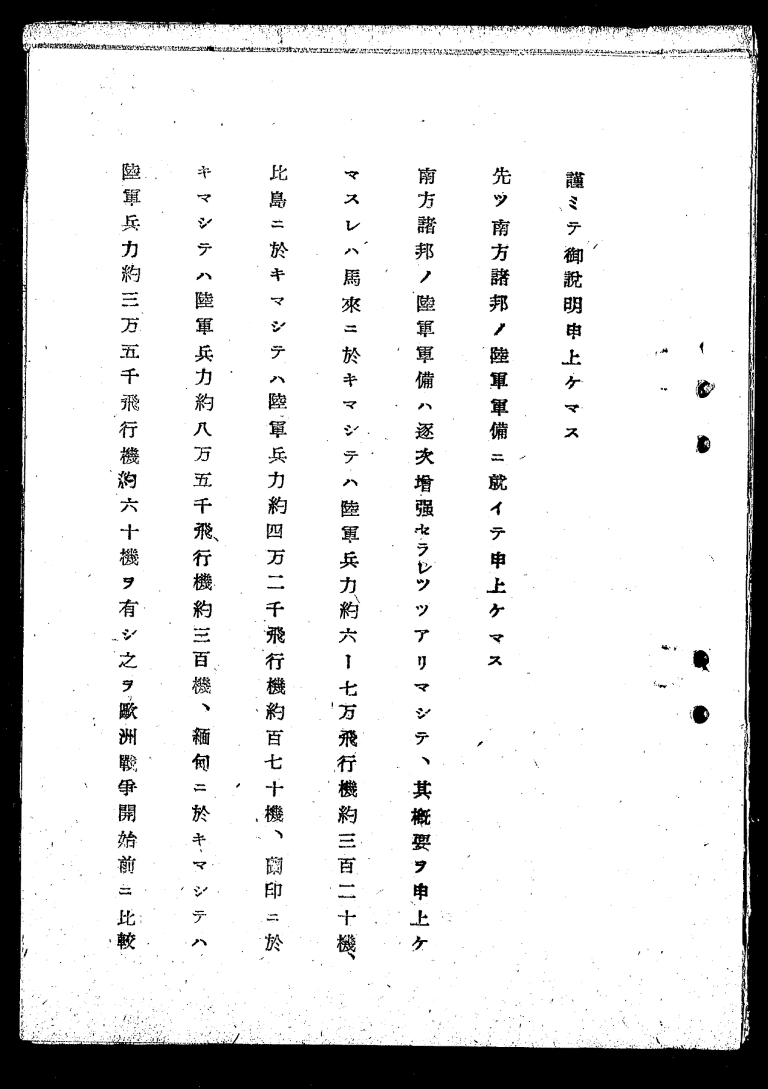 謹ミテ御說明申上ケマス
先ツ南方諸邦ノ陸軍軍備ニ就イテ申上ケマス
南方諸邦ノ陸軍軍備ハ逐次增强セラレツツアリマシテ、其槪要ヲ申上ケ
マスレハ馬來ニ於キマシテハ陸軍兵力約六ー七万飛行機約三百二十機、
比島ニ於キマシテハ陸軍兵力約四万二千飛行機約百七十機、蘭印ニ於
キマシテハ陸軍兵力約八万五千飛行機約三百機、緬甸ニ於キマシテハ
陸軍兵力約三万五千飛行機約六十機ヲ有シ之ヲ歐洲戰爭開始前ニ比較